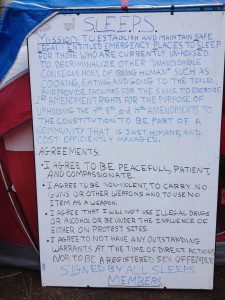 SLEEPS
MISSION: TO ESTABLISH AND MAINTAIN SAFE,
LEGAL ENTITLED EMERGENCY PLACES TO SLEEP
FOR THOSE WHO ARE CURRENTLY UN-HOUSED.
TO DECRIMINALIZE OTHER "UNAVOIDABLE
CONSEQUENCES OF BEING HUMAN" SUCH AS
COOKING, EATING, AND GOING TO THE TOILET
AND PROVIDE FACILITIES FOR THE SAME TO EXERCISE
1st AMENDMENT RIGHTS FOR THE PURPOSE OF
UPHOLDING THE 8th AND AMENDMENTS TO
THE CONSTITUTION. TO BE PART OF A
COMMUNITY THAT IS JUST, HUMANE, AND
COST EFFICIENTLY MANAGED.
AGREEMENTS:
• I AGREE TO BE PEACEFULL, PATIENT,
AND COMPASSIONATE.
• I AGREE TO BE NONVIOLENT, TO CARRY NO
GUNS OR OTHER WEAPONS AND TO USE NO
ITEM AS A WEAPON.
• I AGREE THAT I WILL NOT USE ILLEGAL DRUGS
OR ALCOHOL OR BE UNDER THE INFLUENCE OF
EITHER ON PROTEST SITES.
• I AGREE TO NOT HAVE ANY OUTSTANDING
WARRANTS AT THE TIME OF DIRECT ACTIONS
NOR TO BE A REGISTERED SEX OFFENDER
SIGNED BY ALL SLEEPS
MEMBERS.